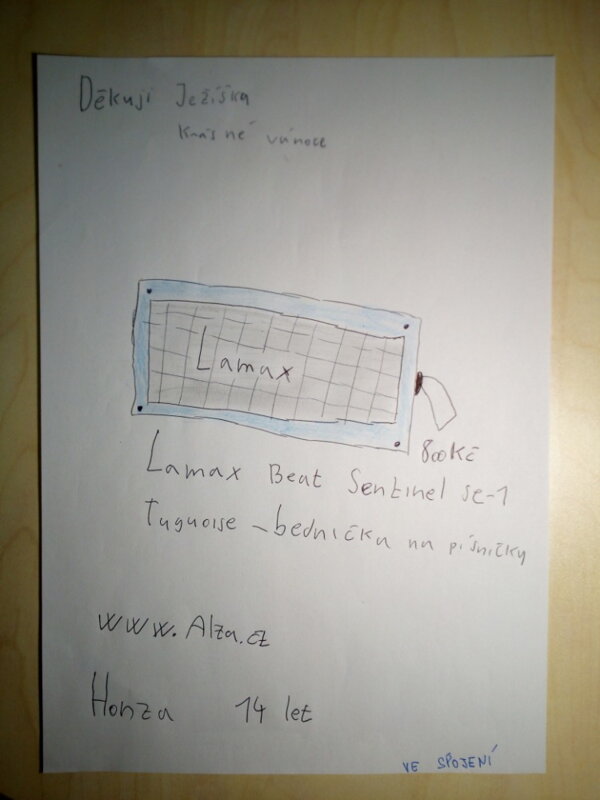 Děkuji Ježíška
Krásné vánoce
Lamax
800Kč
Lamax Beat Sentinel se-1
Tuguoise - bednička na písničky
www.Alza.cz
Honza 14 let
VE SPOJENÍ